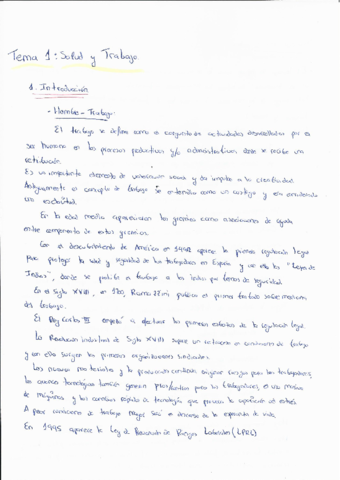 Tema 1: Salud y Trabajo
1. Introducción
- Hombre - Trabajo:
El trabajo se define como el conjunto de actividades desarrolladas por el
ser humano en los procesos productivos y/o administrativos donde se recibe una
retribución.
Es un importante elemento de valoración social y da impulso a la creatividad.
Antiguamente el concepto de trabajo se entendía como un castigo y era entendido
con esclavitud.
En la edad media aparecieron los gremios como asociaciones de ayuda
entre componentes de estos gremios.
Con el descubrimiento de América en 1492 aparece la primera regulación legal
para proteger la salud y seguridad de los trabajadores en España y con ello las "Leyes de
Indias", donde se prohíbe el trabajo a los indios
En el Siglo XVIII, en 1700, Ramazzini publica el primer tratado sobre medicina
del trabajo.
El Rey Carlos III empezó a efectuar los primeros esbozos de la regulación legal.
La Revolución industrial del Siglo XVIII supone un retroceso en condiciones de trabajo
y con ello surgen las primeras organizaciones sindicales.
Los procesos industriales y la producción continua originan riesgos para los trabajadores,
los avances tecnológicos también generan para los trabajadores, el uso masivo
de máquinas y los cambios rápidos de tecnología que provocan la aparición del estrés.
A peor condiciones de trabajo mayor será el descenso de la esperanza de vida.
En 1995 aparece la Ley de Prevención de Riesgos Laborales (LPRL)